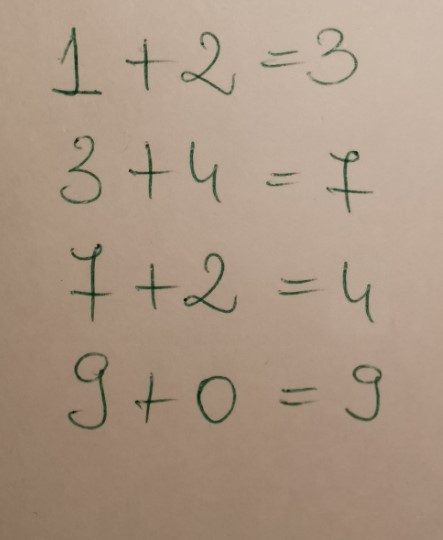 1 + 2 = 3
3 + 4 = 7
7 + 2 = 4
9 + 0 = 9